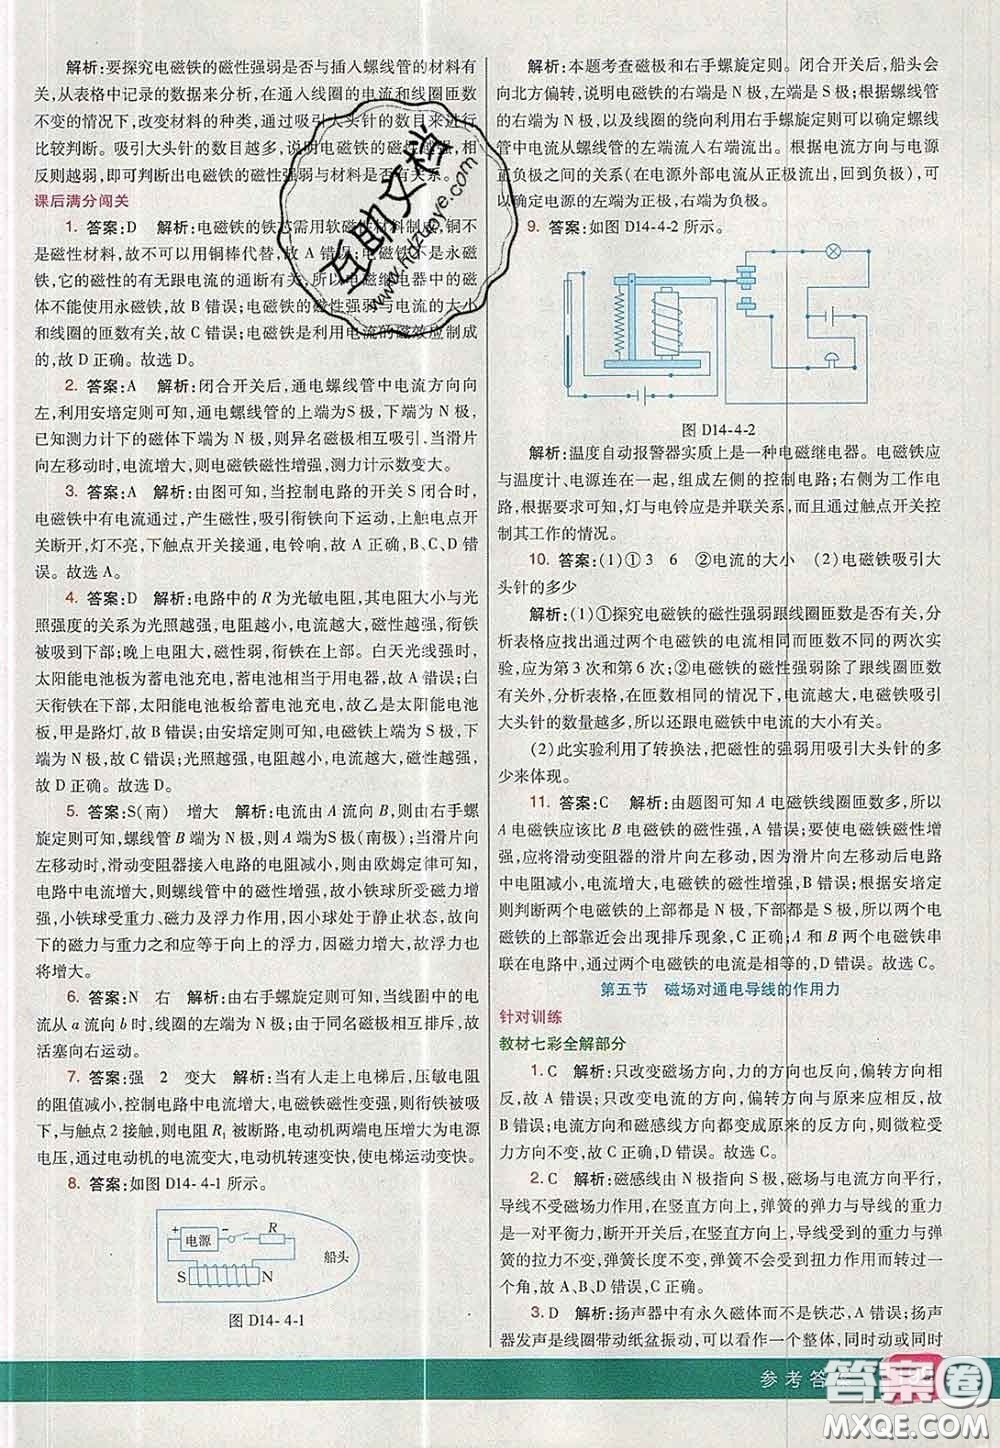 解析:要探究电磁铁的磁性强弱是否与插入螺线管的材料有
关,从表格中记录的数据来分析,在通入线圈的电流和线圈匝数
不变的情况下,改变材料的种类,通过吸引大头针的数目来进行
比较判断。吸引大头针的数目越多,说明电磁铁的磁性越强,相
反则越弱,即可判断出电磁铁的磁性强弱与材料是否有关系。
课后满分闯关
1. 答案:D 解析:电磁铁的铁芯需用软磁性材料制成,铜不
是磁性材料,故不可以用铜棒代替,故 A 错误;电磁铁不是永磁
铁,它的磁性的有无跟电流的通断有关,电磁继电器中的磁
体不能使用永磁铁,故 B 错误;电磁铁的磁性强弱与电流的大小
和线圈的匝数有关,故 C 错误;电磁铁是利用电流的磁效应制成
的,故 D 正确。故选 D。
2. 答案:A 解析:闭合开关后,通电螺线管中电流方向向
左,利用安培定则可知,通电螺线管的上端为S极,下端为 N 极,
已知测力计下的磁体下端为 N 极,则异名磁极相互吸引,当滑片
向左移动时,电流增大,则电磁铁磁性增强,测力计示数变大。
3. 答案:A 解析:由图可知,当控制电路的开关 S 闭合时,
电磁铁中有电流通过,产生磁性,吸引衔铁向下运动,上触点开关
断开,灯不亮,下触点开关接通,电铃响,故 A 正确,B、C、D 错
误。故选 A。
4. 答案:D 解析:电路中的 R 为光敏电阻,其电阻大小与光
照强度的关系为光照越强,电阻越小,电流越大,磁性越强,衔铁
被吸到下部;晚上电阻大,磁性弱,衔铁在上部。白天光线强时,
太阳能电池板给蓄电池充电,蓄电池相当于用电器,故 A 错误;白
天衔铁在下部,太阳能电池板给蓄电池充电,故乙是太阳能电池
板,甲是路灯,故 B 错误;由安培定则可知,电磁铁的上端是 S
极,故 C 错误;光照越强,电阻越小,电流越大,电磁铁的磁性越
强,故 D 正确。故选 D。
5. 答案:S(南) 增大 解析:电流由 A 流向 B,由右手螺
旋定则可知,螺线管 B 端为 N 极,则 A 端为S极(南极);当滑片向
左移动时,滑动变阻器接入电路的电阻减小,则由欧姆定律可知,
电路中电流增大,则螺线管中的磁性增强,故小铁球所受磁力增
强,小铁球受重力、磁力及浮力作用,因小球处于静止状态,故向
下的磁力与重力之和应等于向上的浮力,因磁力增大,故浮力一
定增大。
6. 答案:N 右 解析:由右手螺旋定则可知,线圈中的电
流从 a 流向 b 时,线圈的右端为 N 极;由于同名磁极相互排斥,故
活塞向右运动。
7. 答案:强 2 变大 解析:当有人走上电梯后,压敏电阻
的阻值减小,控制电路中电流增大,电磁铁磁性变强,衔铁被吸
下,与触点 2 接触,则电阻 R₁ 被断路,电动机两端电压增大为电源
电压,通过电动机的电流变大,电动机转速变快,使电梯变快。
8. 答案:如图 D14- 4-1 所示。
+ - R
电源
船头
S N
图 D14- 4-1
解析:本题考查磁极和右手螺旋定则。闭合开关后,船头会
向北方偏转,说明电磁铁的右端是 N 极,左端是S极;根据螺线管
的右端为 N 极,以及线圈的绕向利用右手螺旋定则可以确定螺线
管中电流从螺线管的左端流入右端流出。根据电流方向与电源
正负极的关系(在电源外部电流从正极流出,回到负极)可知,可
以确定电源的左端为正极,右端为负极。
9. 答案:如图 D14-4-2 所示。
图 D14-4-2
解析:温度自动报警器实质上是一种电磁继电器。电磁铁应
与温度计、电源连在一起,组成左侧的控制电路;右侧为工作电
路,根据要求可知,灯与电铃应是并联关系,而且通过触点开关控
制其工作的情况。
10. 答案:(1)①3 6 ②电流的大小 (2)电磁铁吸引大
头针的多少
解析:(1)①探究电磁铁的磁性强弱跟线圈匝数是否有关,分
析表格应找出通过两个电磁铁的电流相同而匝数不同的两次实
验,应为第 3 次和第 6 次;②电磁铁的磁性强弱除了跟线圈匝数
有关外,分析表格,在匝数相同的情况下,电流越大,电磁铁吸引
大头针的数量越多,所以还跟电磁铁中电流的大小有关。
(2)此实验利用了转换法,把磁性的强弱用吸引大头针的多
少来体现。
11. 答案:C 解析:由题图可知 A 电磁铁线圈匝数多,所以
A 电磁铁应该比 B 电磁铁的磁性强,A 错误;要使电磁铁磁性增
强,应将滑动变阻器的滑片向左移动,因为向左移动后电路
中电阻减小,所以电流增大,磁性增强,B 错误;根据安培定
则判断两个电磁铁的上部都是 N 极,下部都是 S 极,所以两个电
磁铁的上部靠近会出现排斥现象,C 正确;A 和 B 两个电磁铁串
联在电路中,所以通过两个电磁铁的电流是相等的,D 错误。故选 C。
第五节 磁场对通电导线的作用力
针对训练
教材七彩全解部分
1. C 解析:只改变磁场方向,力的方向也反向,偏转方向相
反,故 A 错误;只改变电流的方向,力的方向反向,偏转方向相反,
B错误;电流方向和磁感线方向都变成原来的反方向,则微粒受
力方向不变,故C正确,D 错误。故选 C。
2. C 解析:磁感线由 N 极指向S极,磁场与电流方向平行,
导线不受磁场力作用,在竖直方向上,弹簧的弹力与导线的重力
是一对平衡力,断开开关后,在竖直方向上,弹簧的弹力与导线
弹簧的拉力不变,弹簧长度不变,弹簧不会出现扭力作用而转过
一个角,故 A、B、D 错误,C 正确。
3. D 解析:扬声器中有永久磁体而不是铁芯,A 错误;扬声
器发声是线圈带动纸盆振动,可以看作一个整体,同时动或同时
参考答案
互助文档
www.hdzuoye.com
答案圈
MXQE.COM